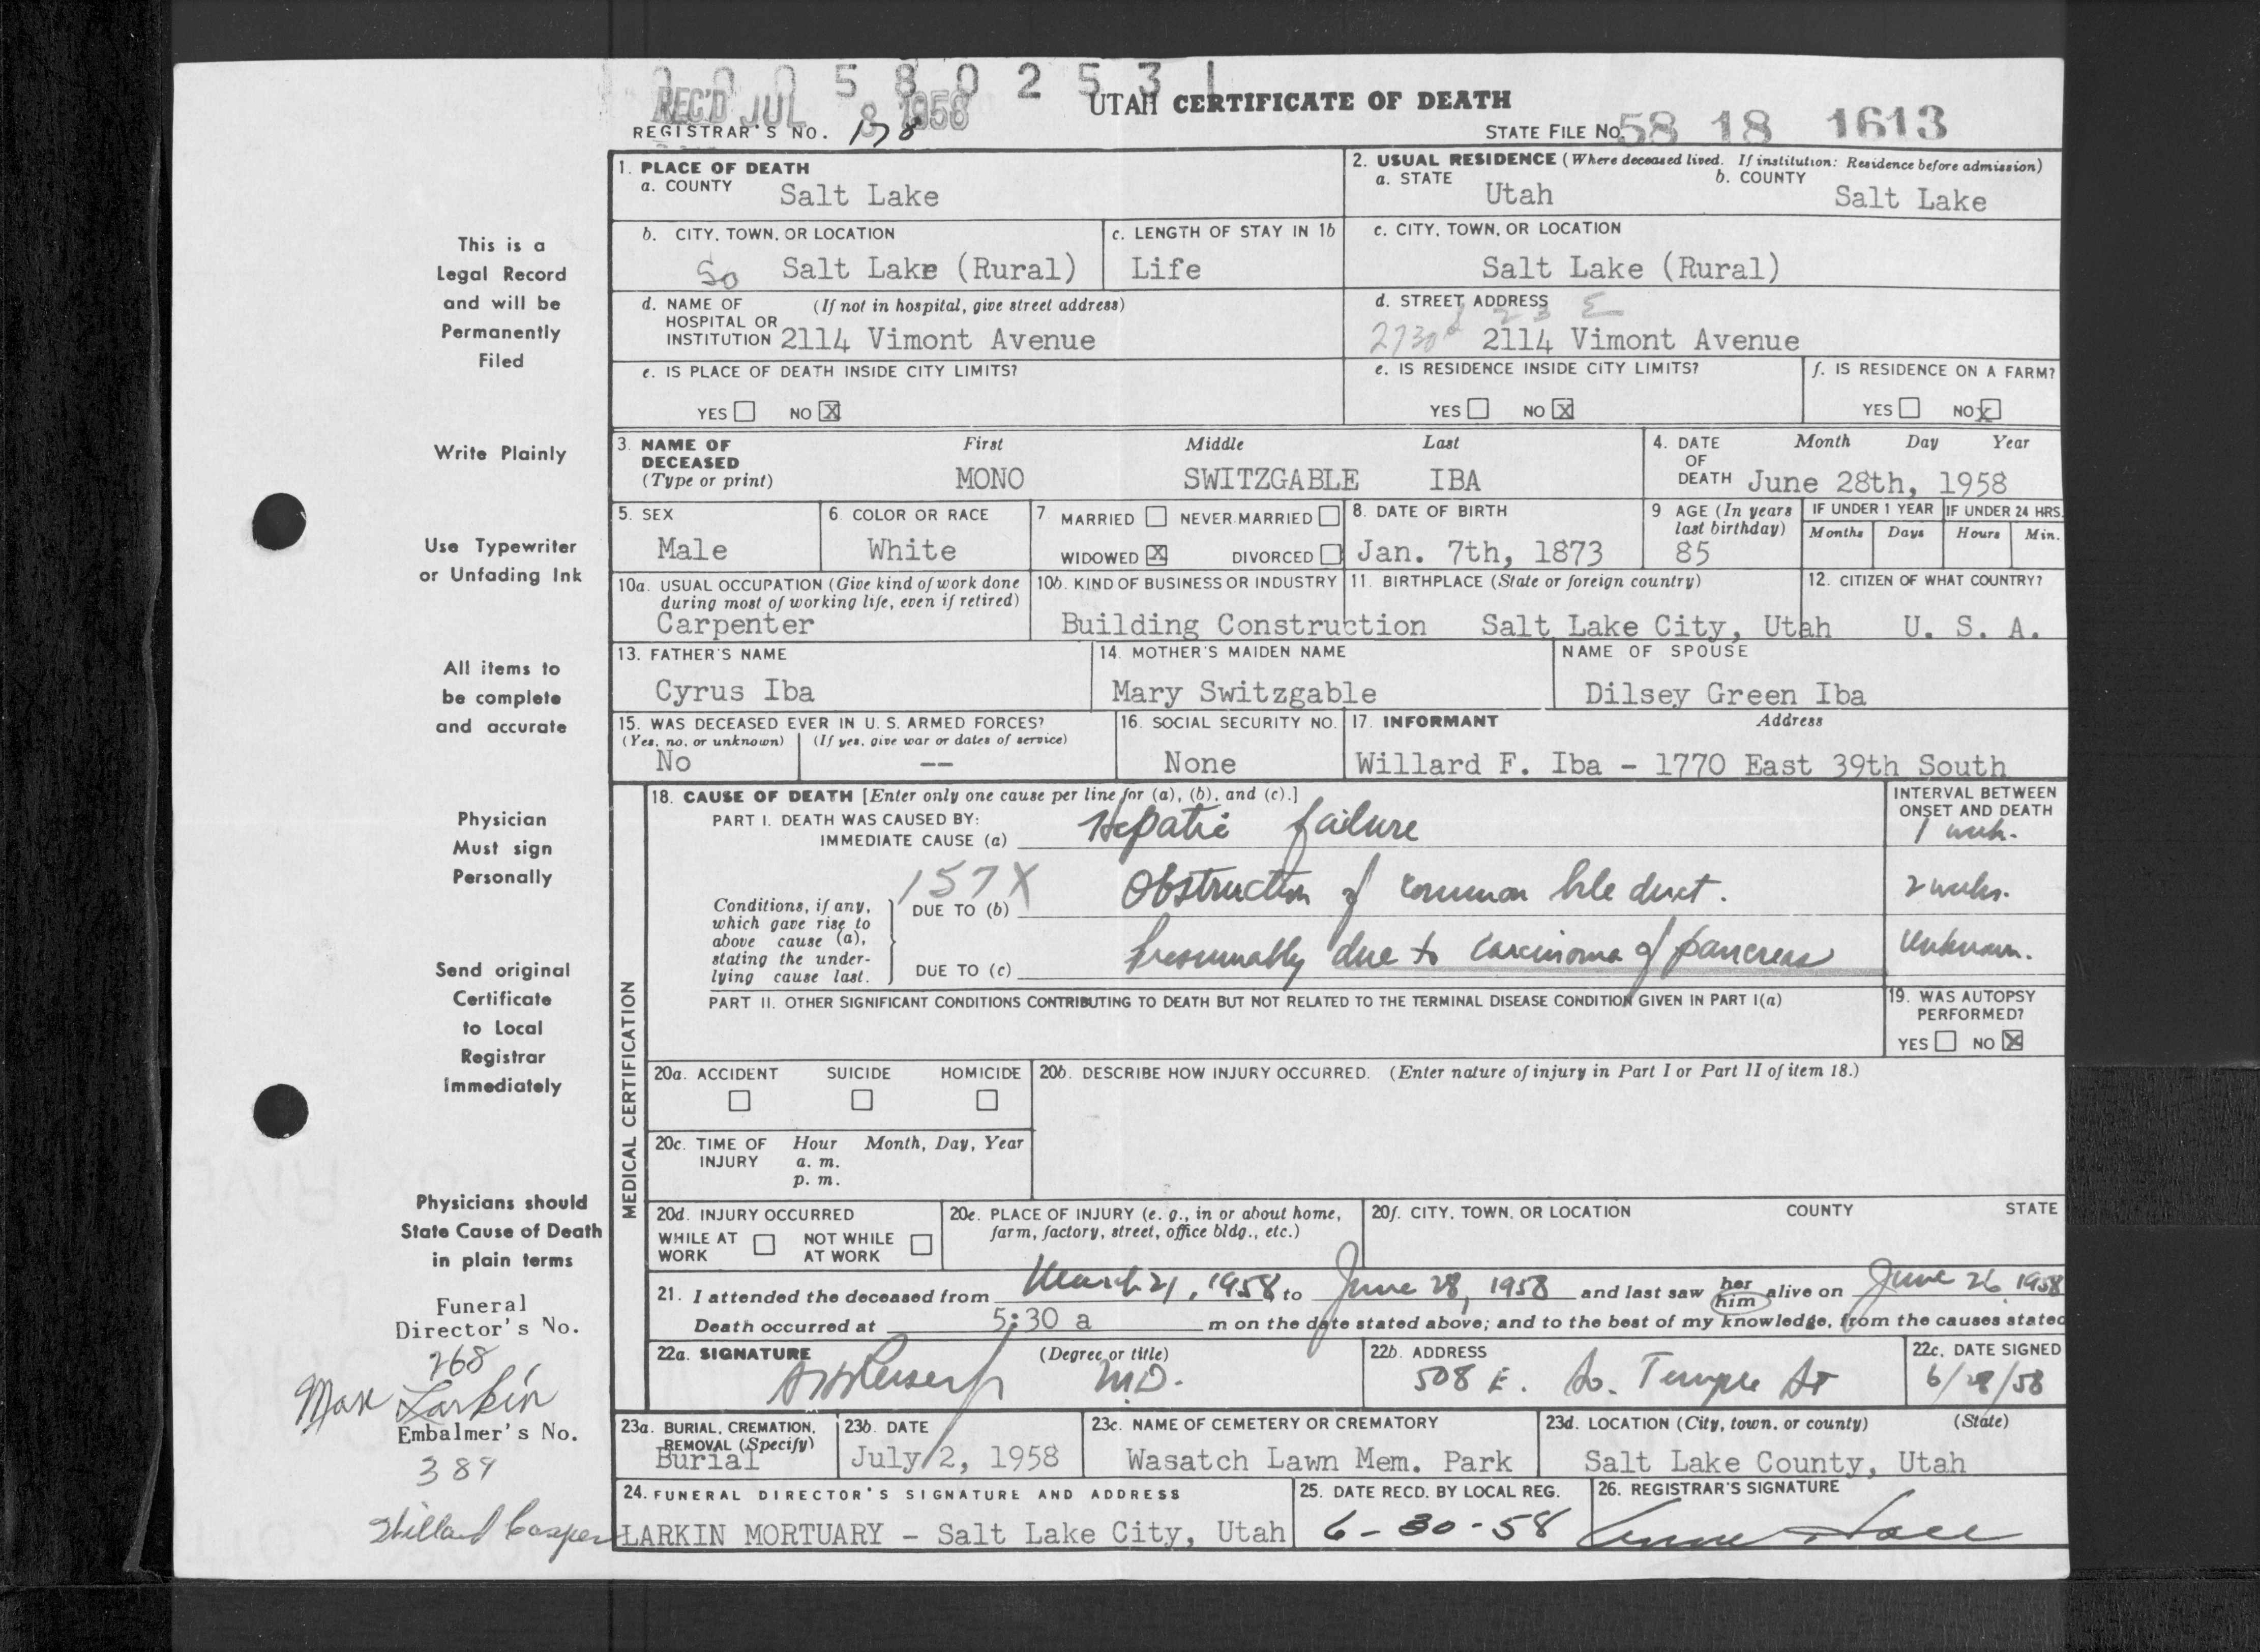 0 0 0 5 8 0 2 5 3 1
REC'D JUL 8 1958
UTAH CERTIFICATE OF DEATH
REGISTRAR'S NO. 178
STATE FILE NO. 58 18 1613
1. PLACE OF DEATH
a. COUNTY Salt Lake
2. USUAL RESIDENCE (Where deceased lived. If institution: Residence before admission)
a. STATE Utah b. COUNTY Salt Lake
b. CITY, TOWN, OR LOCATION
So Salt Lake (Rural)
c. LENGTH OF STAY IN 1b
Life
c. CITY, TOWN, OR LOCATION
Salt Lake (Rural)
d. NAME OF HOSPITAL OR INSTITUTION (If not in hospital, give street address)
2114 Vimont Avenue
d. STREET ADDRESS 23 E
2730 2114 Vimont Avenue
e. IS PLACE OF DEATH INSIDE CITY LIMITS?
YES NO X
e. IS RESIDENCE INSIDE CITY LIMITS?
YES NO X
f. IS RESIDENCE ON A FARM?
YES NO X
3. NAME OF DECEASED (Type or print)
First Middle Last
MONO SWITZGABLE IBA
4. DATE OF DEATH Month Day Year
June 28th, 1958
5. SEX
Male
6. COLOR OR RACE
White
7 MARRIED NEVER MARRIED
WIDOWED X DIVORCED
8. DATE OF BIRTH
Jan. 7th, 1873
9 AGE (In years last birthday)
85
IF UNDER 1 YEAR
Months Days
IF UNDER 24 HRS.
Hours Min.
10a. USUAL OCCUPATION (Give kind of work done during most of working life, even if retired)
Carpenter
10b. KIND OF BUSINESS OR INDUSTRY
Building Construction
11. BIRTHPLACE (State or foreign country)
Salt Lake City, Utah
12. CITIZEN OF WHAT COUNTRY?
U. S. A.
13. FATHER'S NAME
Cyrus Iba
14. MOTHER'S MAIDEN NAME
Mary Switzgable
NAME OF SPOUSE
Dilsey Green Iba
15. WAS DECEASED EVER IN U. S. ARMED FORCES?
(Yes, no, or unknown) (If yes, give war or dates of service)
No --
16. SOCIAL SECURITY NO.
None
17. INFORMANT Address
Willard F. Iba - 1770 East 39th South
MEDICAL CERTIFICATION
18. CAUSE OF DEATH [Enter only one cause per line for (a), (b), and (c).]
INTERVAL BETWEEN ONSET AND DEATH
PART I. DEATH WAS CAUSED BY:
IMMEDIATE CAUSE (a) Hepatic failure 1 week.
157X
Conditions, if any, which gave rise to above cause (a), stating the underlying cause last.
DUE TO (b) Obstruction of common bile duct. 2 weeks.
DUE TO (c) Presumably due to carcinoma of pancreas Unknown.
PART II. OTHER SIGNIFICANT CONDITIONS CONTRIBUTING TO DEATH BUT NOT RELATED TO THE TERMINAL DISEASE CONDITION GIVEN IN PART I(a)
19. WAS AUTOPSY PERFORMED?
YES NO X
20a. ACCIDENT SUICIDE HOMICIDE
20b. DESCRIBE HOW INJURY OCCURRED. (Enter nature of injury in Part I or Part II of item 18.)
20c. TIME OF INJURY Hour Month, Day, Year
a. m.
p. m.
20d. INJURY OCCURRED
WHILE AT WORK NOT WHILE AT WORK
20e. PLACE OF INJURY (e. g., in or about home, farm, factory, street, office bldg., etc.)
20f. CITY, TOWN, OR LOCATION COUNTY STATE
21. I attended the deceased from March 21, 1958, to June 28, 1958 and last saw her him alive on June 26 1958
Death occurred at 5:30 a m on the date stated above; and to the best of my knowledge, from the causes stated
22a. SIGNATURE (Degree or title)
M.D.
22b. ADDRESS
508 E. So. Temple St
22c. DATE SIGNED
6/28/58
23a. BURIAL, CREMATION, REMOVAL (Specify)
Burial
23b. DATE
July 2, 1958
23c. NAME OF CEMETERY OR CREMATORY
Wasatch Lawn Mem. Park
23d. LOCATION (City, town, or county) (State)
Salt Lake County, Utah
24. FUNERAL DIRECTOR'S SIGNATURE AND ADDRESS
LARKIN MORTUARY - Salt Lake City, Utah
25. DATE RECD. BY LOCAL REG.
6-30-58
26. REGISTRAR'S SIGNATURE
This is a
Legal Record
and will be
Permanently
Filed
Write Plainly
Use Typewriter
or Unfading Ink
All items to
be complete
and accurate
Physician
Must sign
Personally
Send original
Certificate
to Local
Registrar
Immediately
Physicians should
State Cause of Death
in plain terms
Funeral
Director's No.
268
Max Larkin
Embalmer's No.
389
Willard Casper